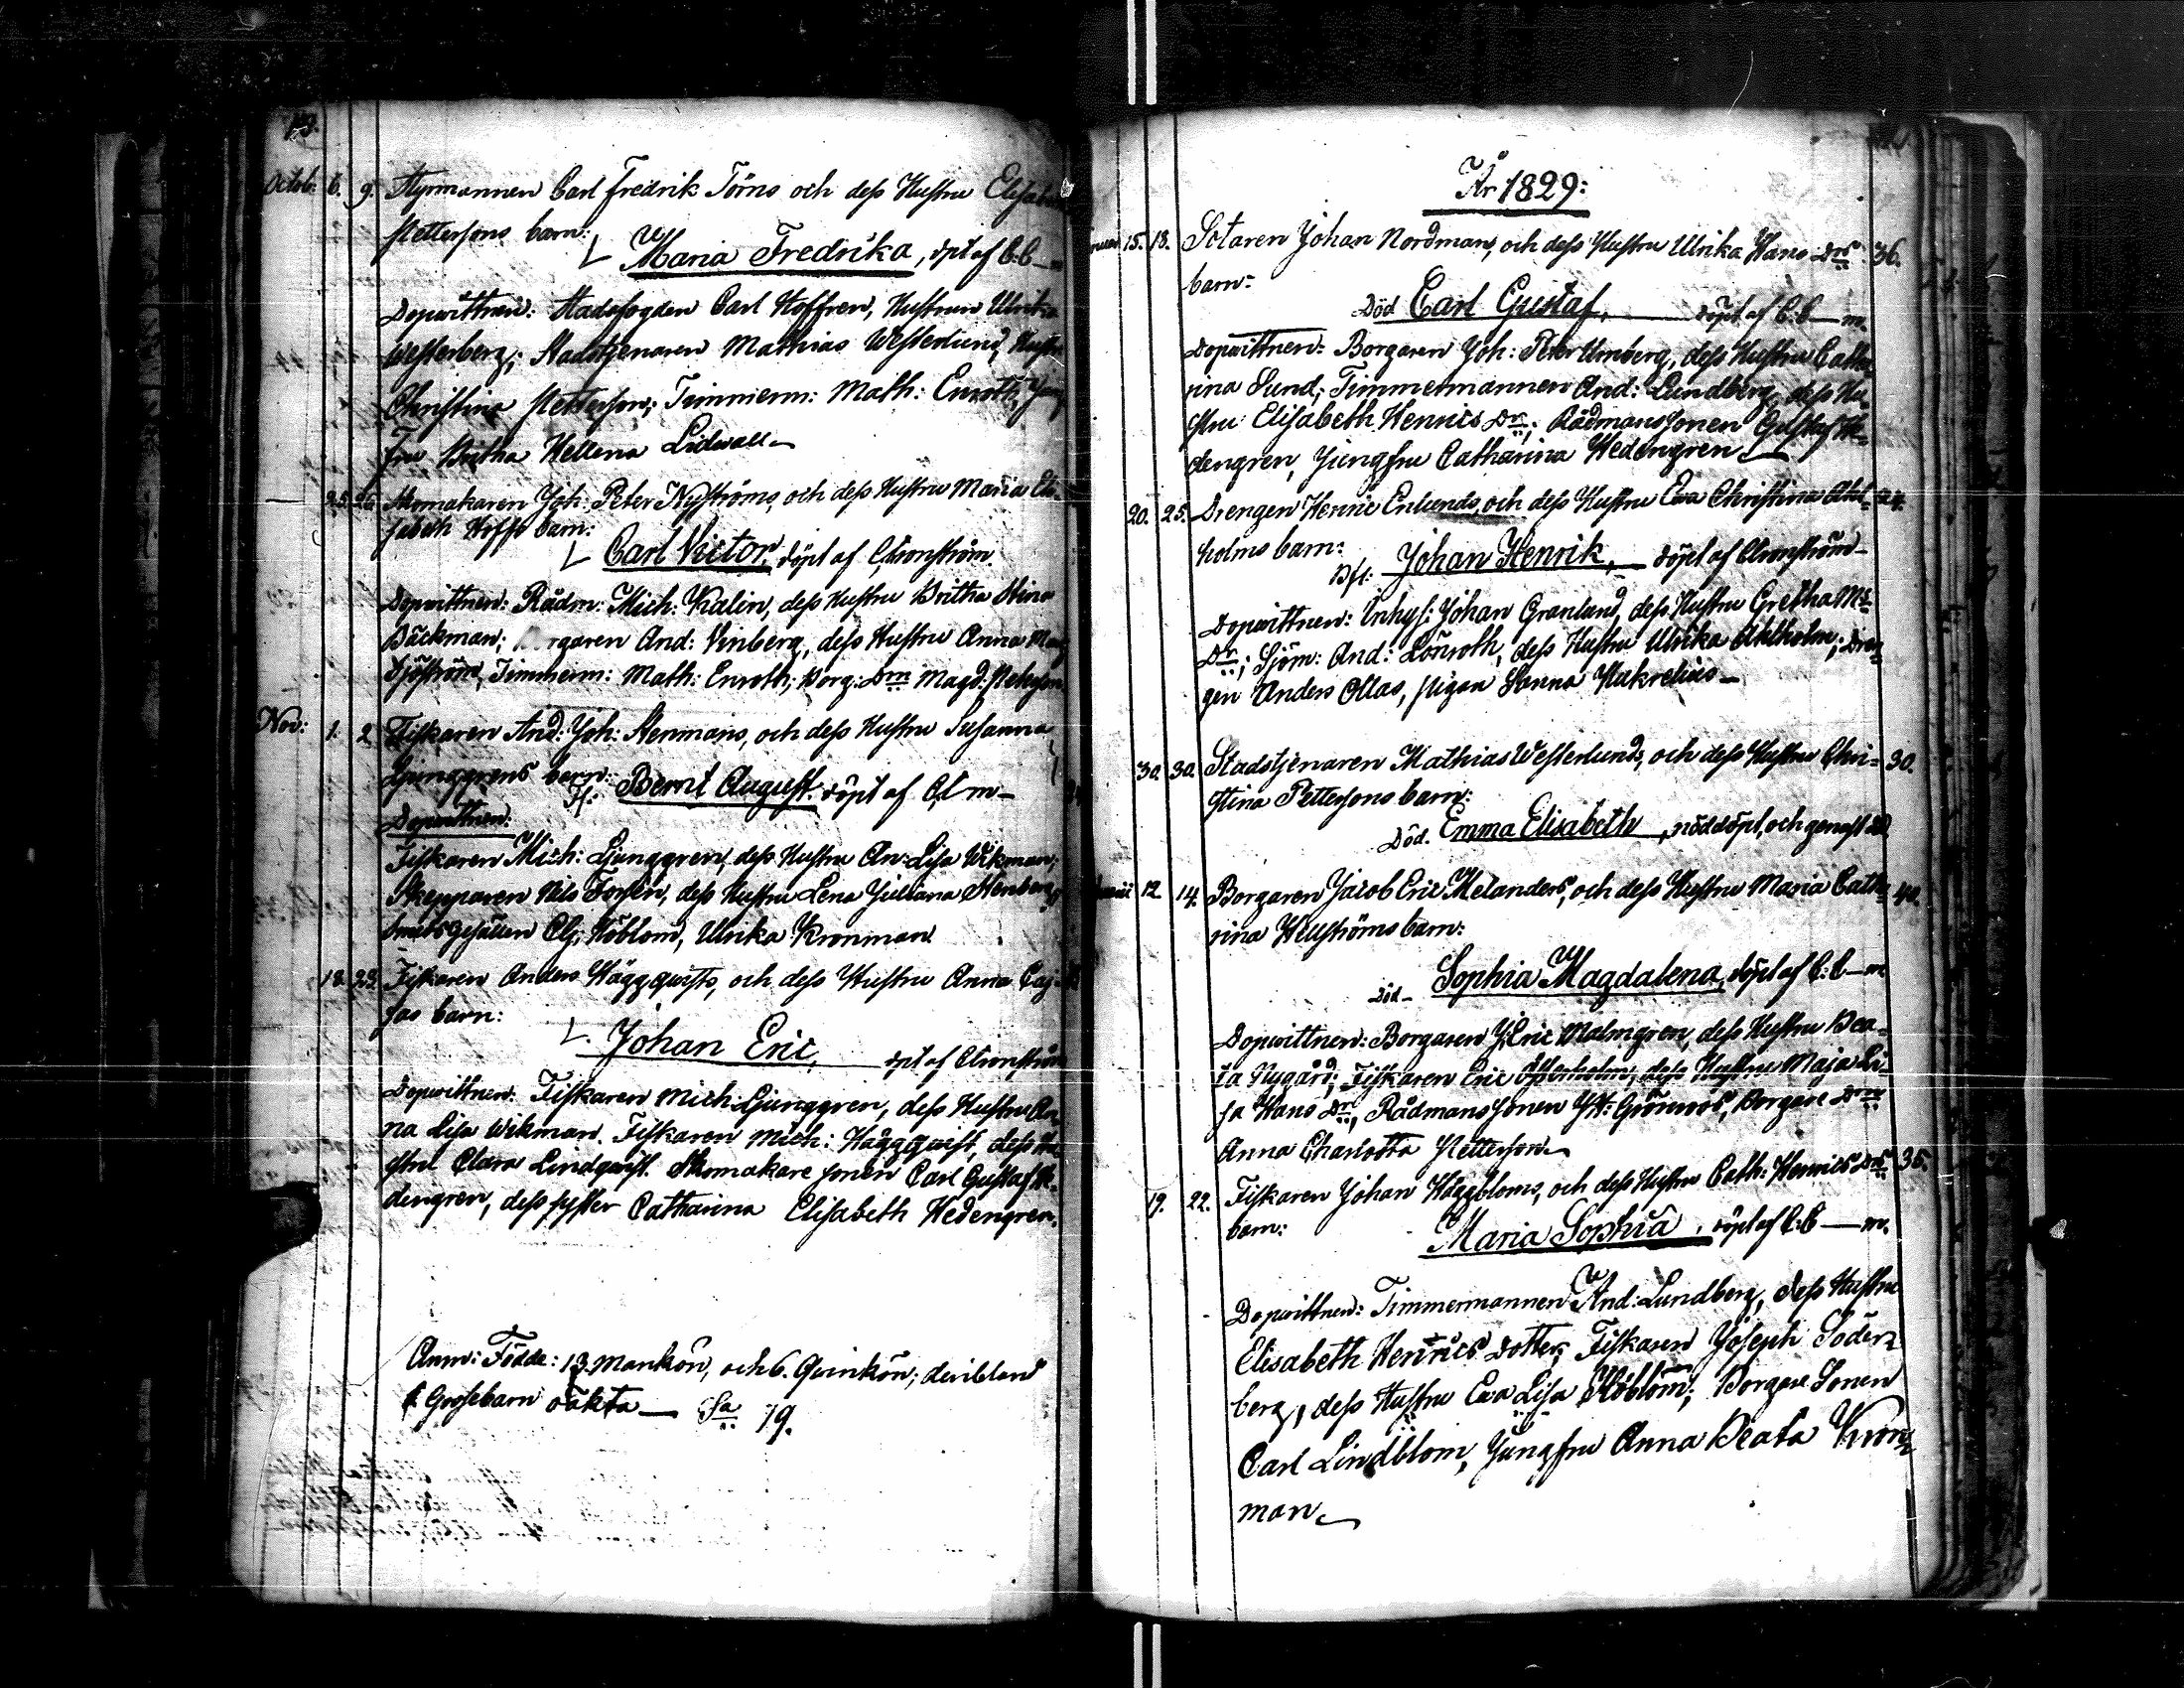 Octob: 6. 9. Styrmannen Carl Fredrik Törns och dess Hustru Elisabeth
Pettersons barn:
Maria Fredrika, döpt af C:C—m
Dopvittnen: Stadsfogden Carl Hoffren, Hustrun Ulrika
Westerberg; Stadstjenaren Mathias Westerlund, Hustru
Christina Petterson; Timmerm: Math: Enroth, Jung
fru Britha Hellena Lidwall
25. 26. Skomakaren Joh: Peter Nyströms, och dess Hustru Maria Eli-
sabeth Hoffs barn:
Carl Victor, döpt af Cronström.
Dopvittnen: Rådm: Mich: Kalin, dess Hustru Britha Stina
Bäckman; Borgaren And: Vinberg, dess Hustru Anna
Sjöström, Timmerm: Math: Enroth; Borg: Drn Magd: Peterson
Nov: 1. 2 Fiskaren And: Joh: Stenmans, och dess Hustru Susanna
Ljunggrens barn:
Bernt August. döpt af C m—
Dopvittnen:
Fiskaren Mich: Ljunggren, dess Hustru An: Lisa Wikman;
Skepparen Nils Forsén, dess Hustru Lena Juliana Stenberg,
Smedsgesällen Höblom, Ulrika Kronman.
18. 23. Fiskaren Anders Häggqvists, och dess Hustru Anna Caj-
sas barn:
Johan Eric, döpt af Cronström
Dopvittnen: Fiskaren Mich: Ljunggren, dess Hustru An
na Lisa Wikman. Fiskaren Mich: Häggqvist, dess Hu
stru Clara Lindqvist. Skomakare sonen Carl Gustaf He-
dengren, dess syster Catharina Elisabeth Hedengren.
Anm: Födde: 13. Mankön, och 6. Qvinkön; deribland
oäkta — Sa 19.
År 1829:
15. 18. Sotaren Johan Nordmans, och dess Hustru Ulrika Hans Drs 36.
barn:
Död Carl Gustaf, döpt af C:C—m.
Dopvittnen: Borgaren Joh: Peter Umberg, dess Hustru Catha
rina Sund; Timmermannen And: Lundberg, dess Hu
stru Elisabeth Henrics Dr; Rådmanssonen Gustaf He-
dengren, Jungfru Catharina Hedengren
20. 25. Drengen Henric Enlunds, och dess Hustru Eva Christina Ahl- 24.
holms barn:
Johan Henrik, döpt af Cronström—
Dopvittnen: Inhys: Johan Granlund, dess Hustru Gretha Ms
Dr; Sjöm: And: Lönroth, dess Hustru Ulrika Ahlholm; Dren
gen Anders Ollas, pigan Sanna Kukrelius—
30. 30. Stadstjenaren Mathias Westerlunds, och dess Hustru Chri- 30.
stina Pettersons barn:
Död. Emma Elisabeth, nöddöpt, och genast död
12 14. Borgaren Jacob Eric Melanders, och dess Hustru Maria Catha- 40.
rina Hellströms barn:
Död— Sophia Magdalena, döpt af C:C—m
Dopvittnen: Borgaren J: Eric Malmgren, dess Hustru Bea-
ta Nygård; Fiskaren Eric Österholm, dess Hustru Maja Li-
sa Hans Dr, Rådmanssonen Grönroos, Borgare Drn
Anna Charlotta Petterson
19. 22. Fiskaren Johan Häggbloms, och dess Hustru Cath: Henrics Drs 35.
barn:
Maria Sophia, döpt af C:C—m.
Dopvittnen: Timmermannen And: Lundberg, dess Hustru
Elisabeth Henrics dotter, Fiskaren Joseph Söder-
berg, dess Hustru Eva Lisa Höblom; Borgare Sonen
Carl Lindblom, Jungfru Anna Beata Kron-
man